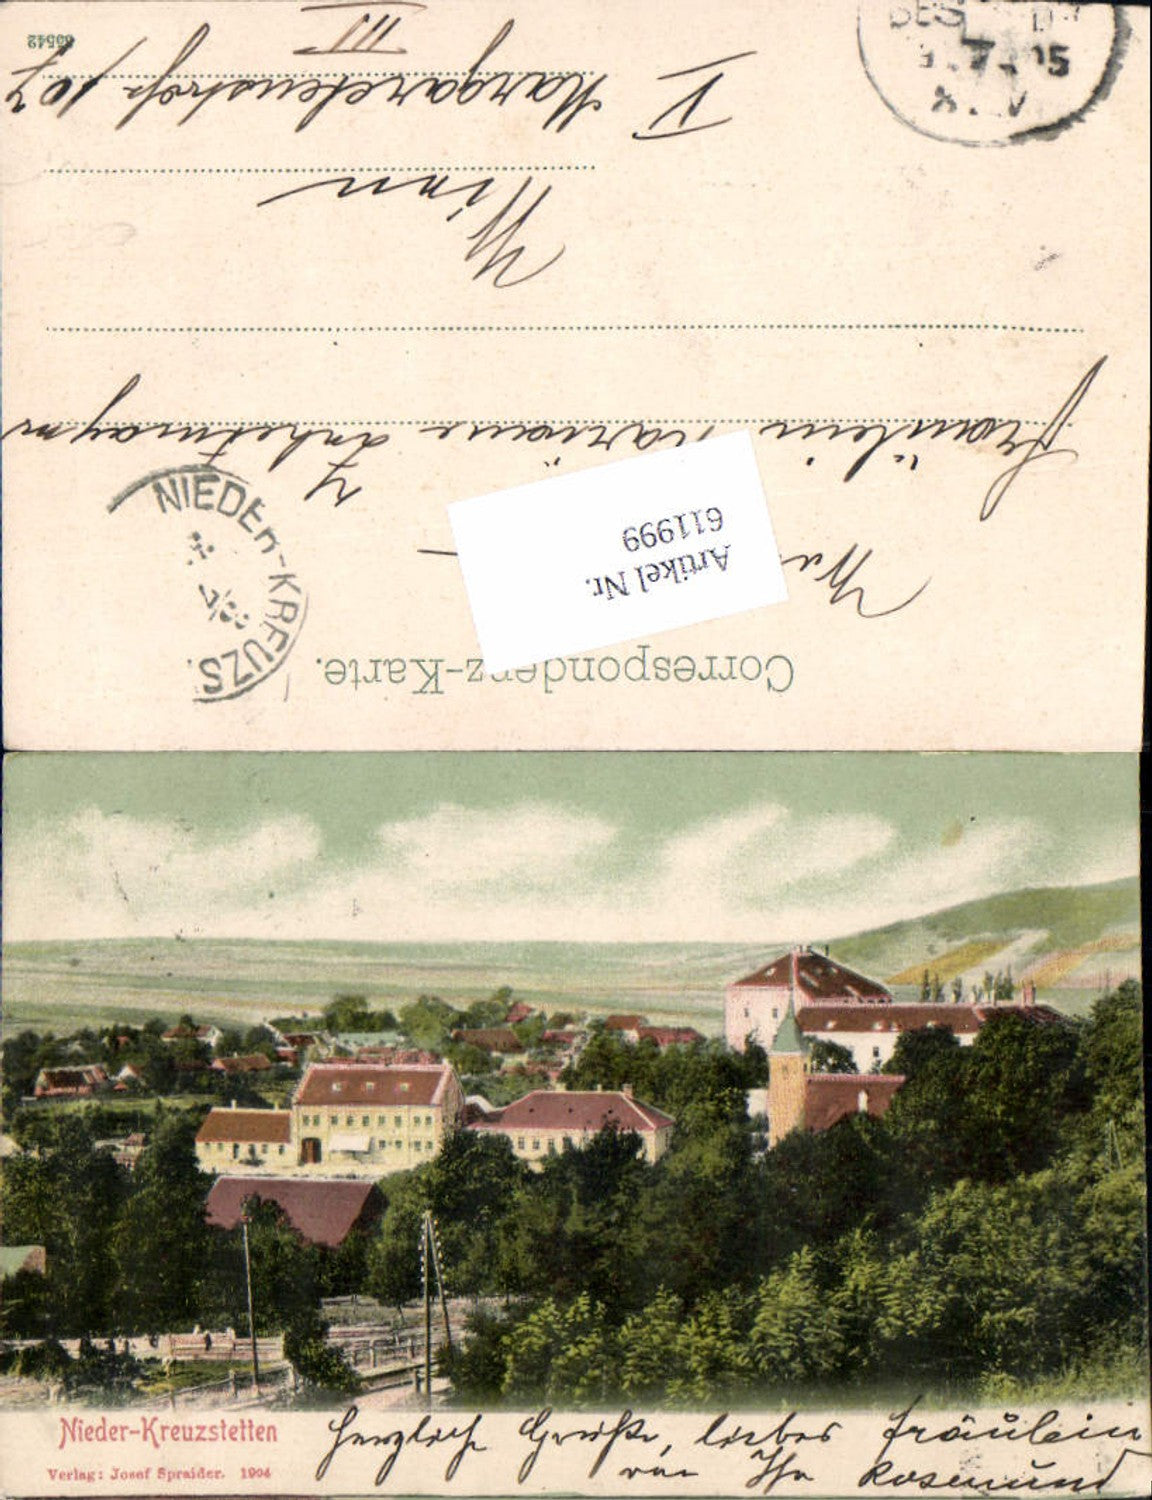 Correspondenz-Karte.
NIEDER-KREUZS.
Artikel Nr.
611999
Fräulein
Wien
V Margaretenstrß 107
III
65542
Nieder-Kreuzstetten
Verlag: Josef Spraider. 1904
Herzliche Grüße, liebes Fräulein
von Ihr Rosamund